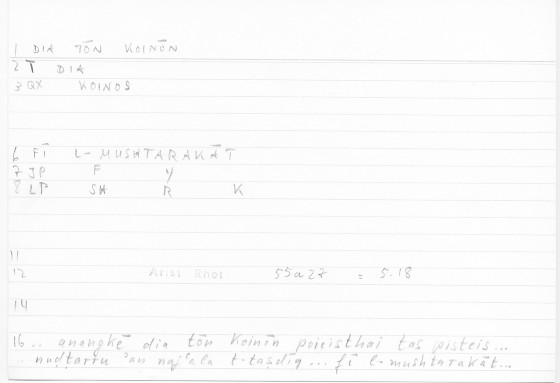 1 DIA TŌN KOINŌN
2 T DIA
3 QX KOINOS
6 FĪ L-MUSHTARAKĀT
7 JP F Y
8 LP SH R K
11
12 Arist Rhet 55a27 = 5.18
14
16 .. anangkē dia tōn koinōn poieisthai tas pisteis...
.. nuḍṭarru 'an naj'ala t-tasdīq... fī l-mushtarakāt...